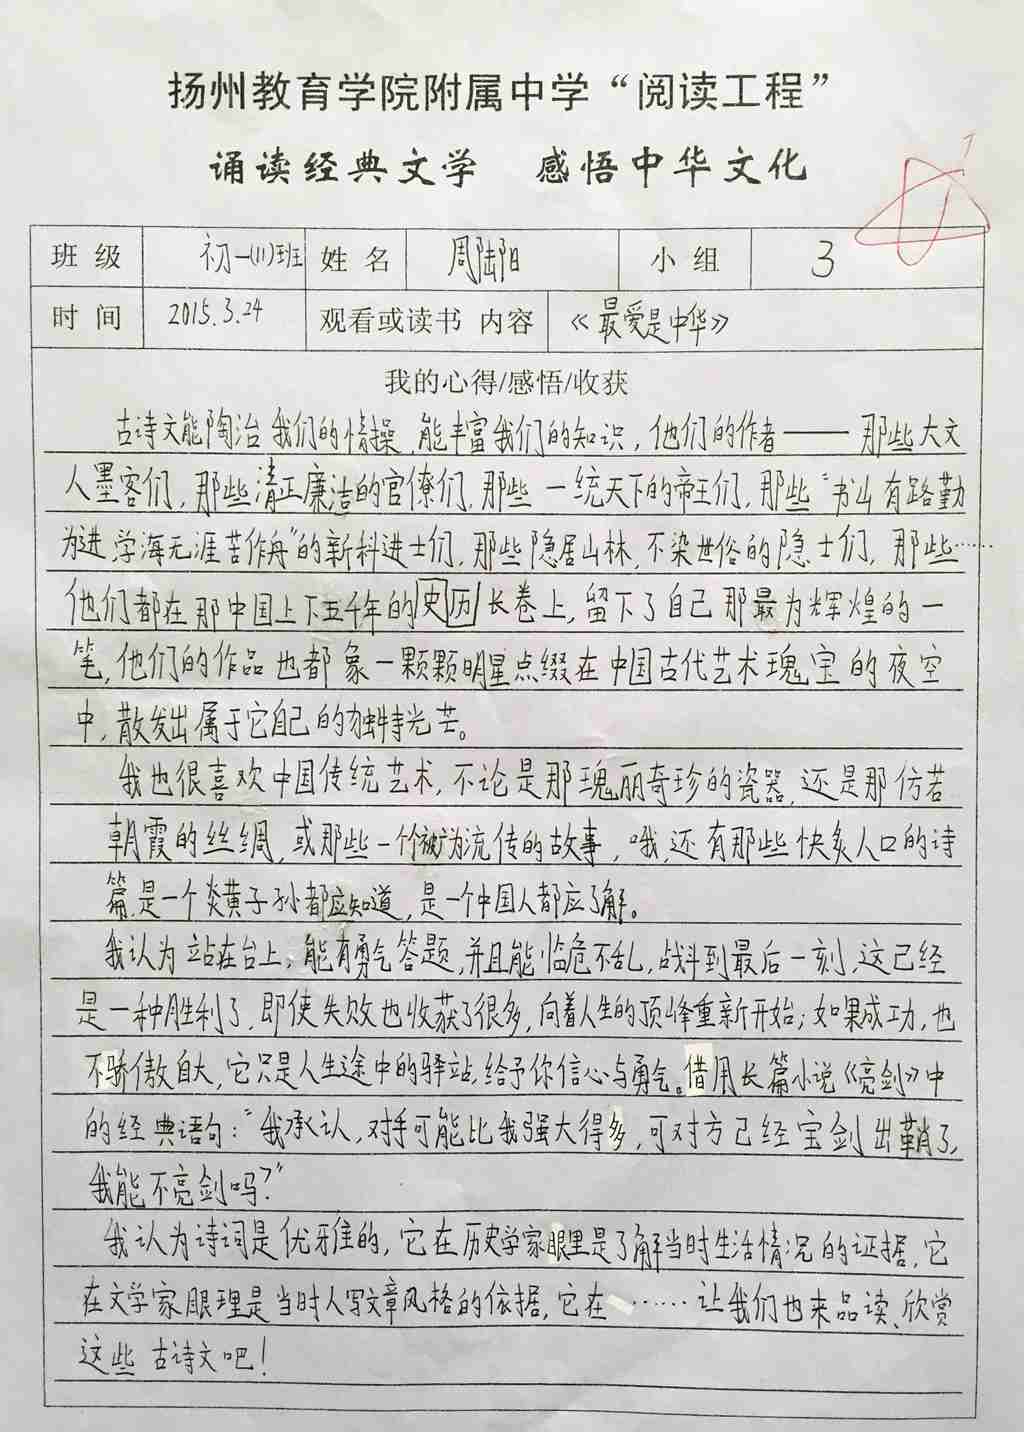 扬州教育学院附属中学“阅读工程”
诵读经典文学 感悟中华文化
班级 初一(11)班 姓名 周陆阳 小组 3
时间 2015.3.24 观看或读书 内容 《最爱是中华》
我的心得/感悟/收获
古诗文能陶冶我们的情操,能丰富我们的知识,他们的作者——那些大文
人墨客们,那些清正廉洁的官僚们,那些一统天下的帝王们,那些“书山有路勤
为进,学海无涯苦作舟”的新科进士们,那些隐居山林,不染世俗的隐士们,那些……
他们都在那中国上下五千年的史历长卷上,留下了自己那最为辉煌的一
笔,他们的作品也都象一颗颗明星点缀在中国古代艺术瑰宝的夜空
中,散发出属于它自己的独特光芒。
我也很喜欢中国传统艺术,不论是那瑰丽奇珍的瓷器,还是那仿若
朝霞的丝绸,或那些一个个被广为流传的故事,哦,还有那些快炙人口的诗
篇,是一个炎黄子孙都应知道,是一个中国人都应了解。
我认为站在台上,能有勇气答题,并且能临危不乱,战斗到最后一刻,这已经
是一种胜利了,即使失败也收获了很多,向着人生的顶峰重新开始;如果成功,也
不骄傲自大,它只是人生途中的驿站,给予你信心与勇气。借用长篇小说《亮剑》中
的经典语句:“我承认,对手可能比我强大得多,可对方已经宝剑出鞘了,
我能不亮剑吗?”
我认为诗词是优雅的,它在历史学家眼里是了解当时生活情况的证据,它
在文学家眼理是当时人写文章风格的依据,它在……让我们也来品读、欣赏
这些古诗文吧!